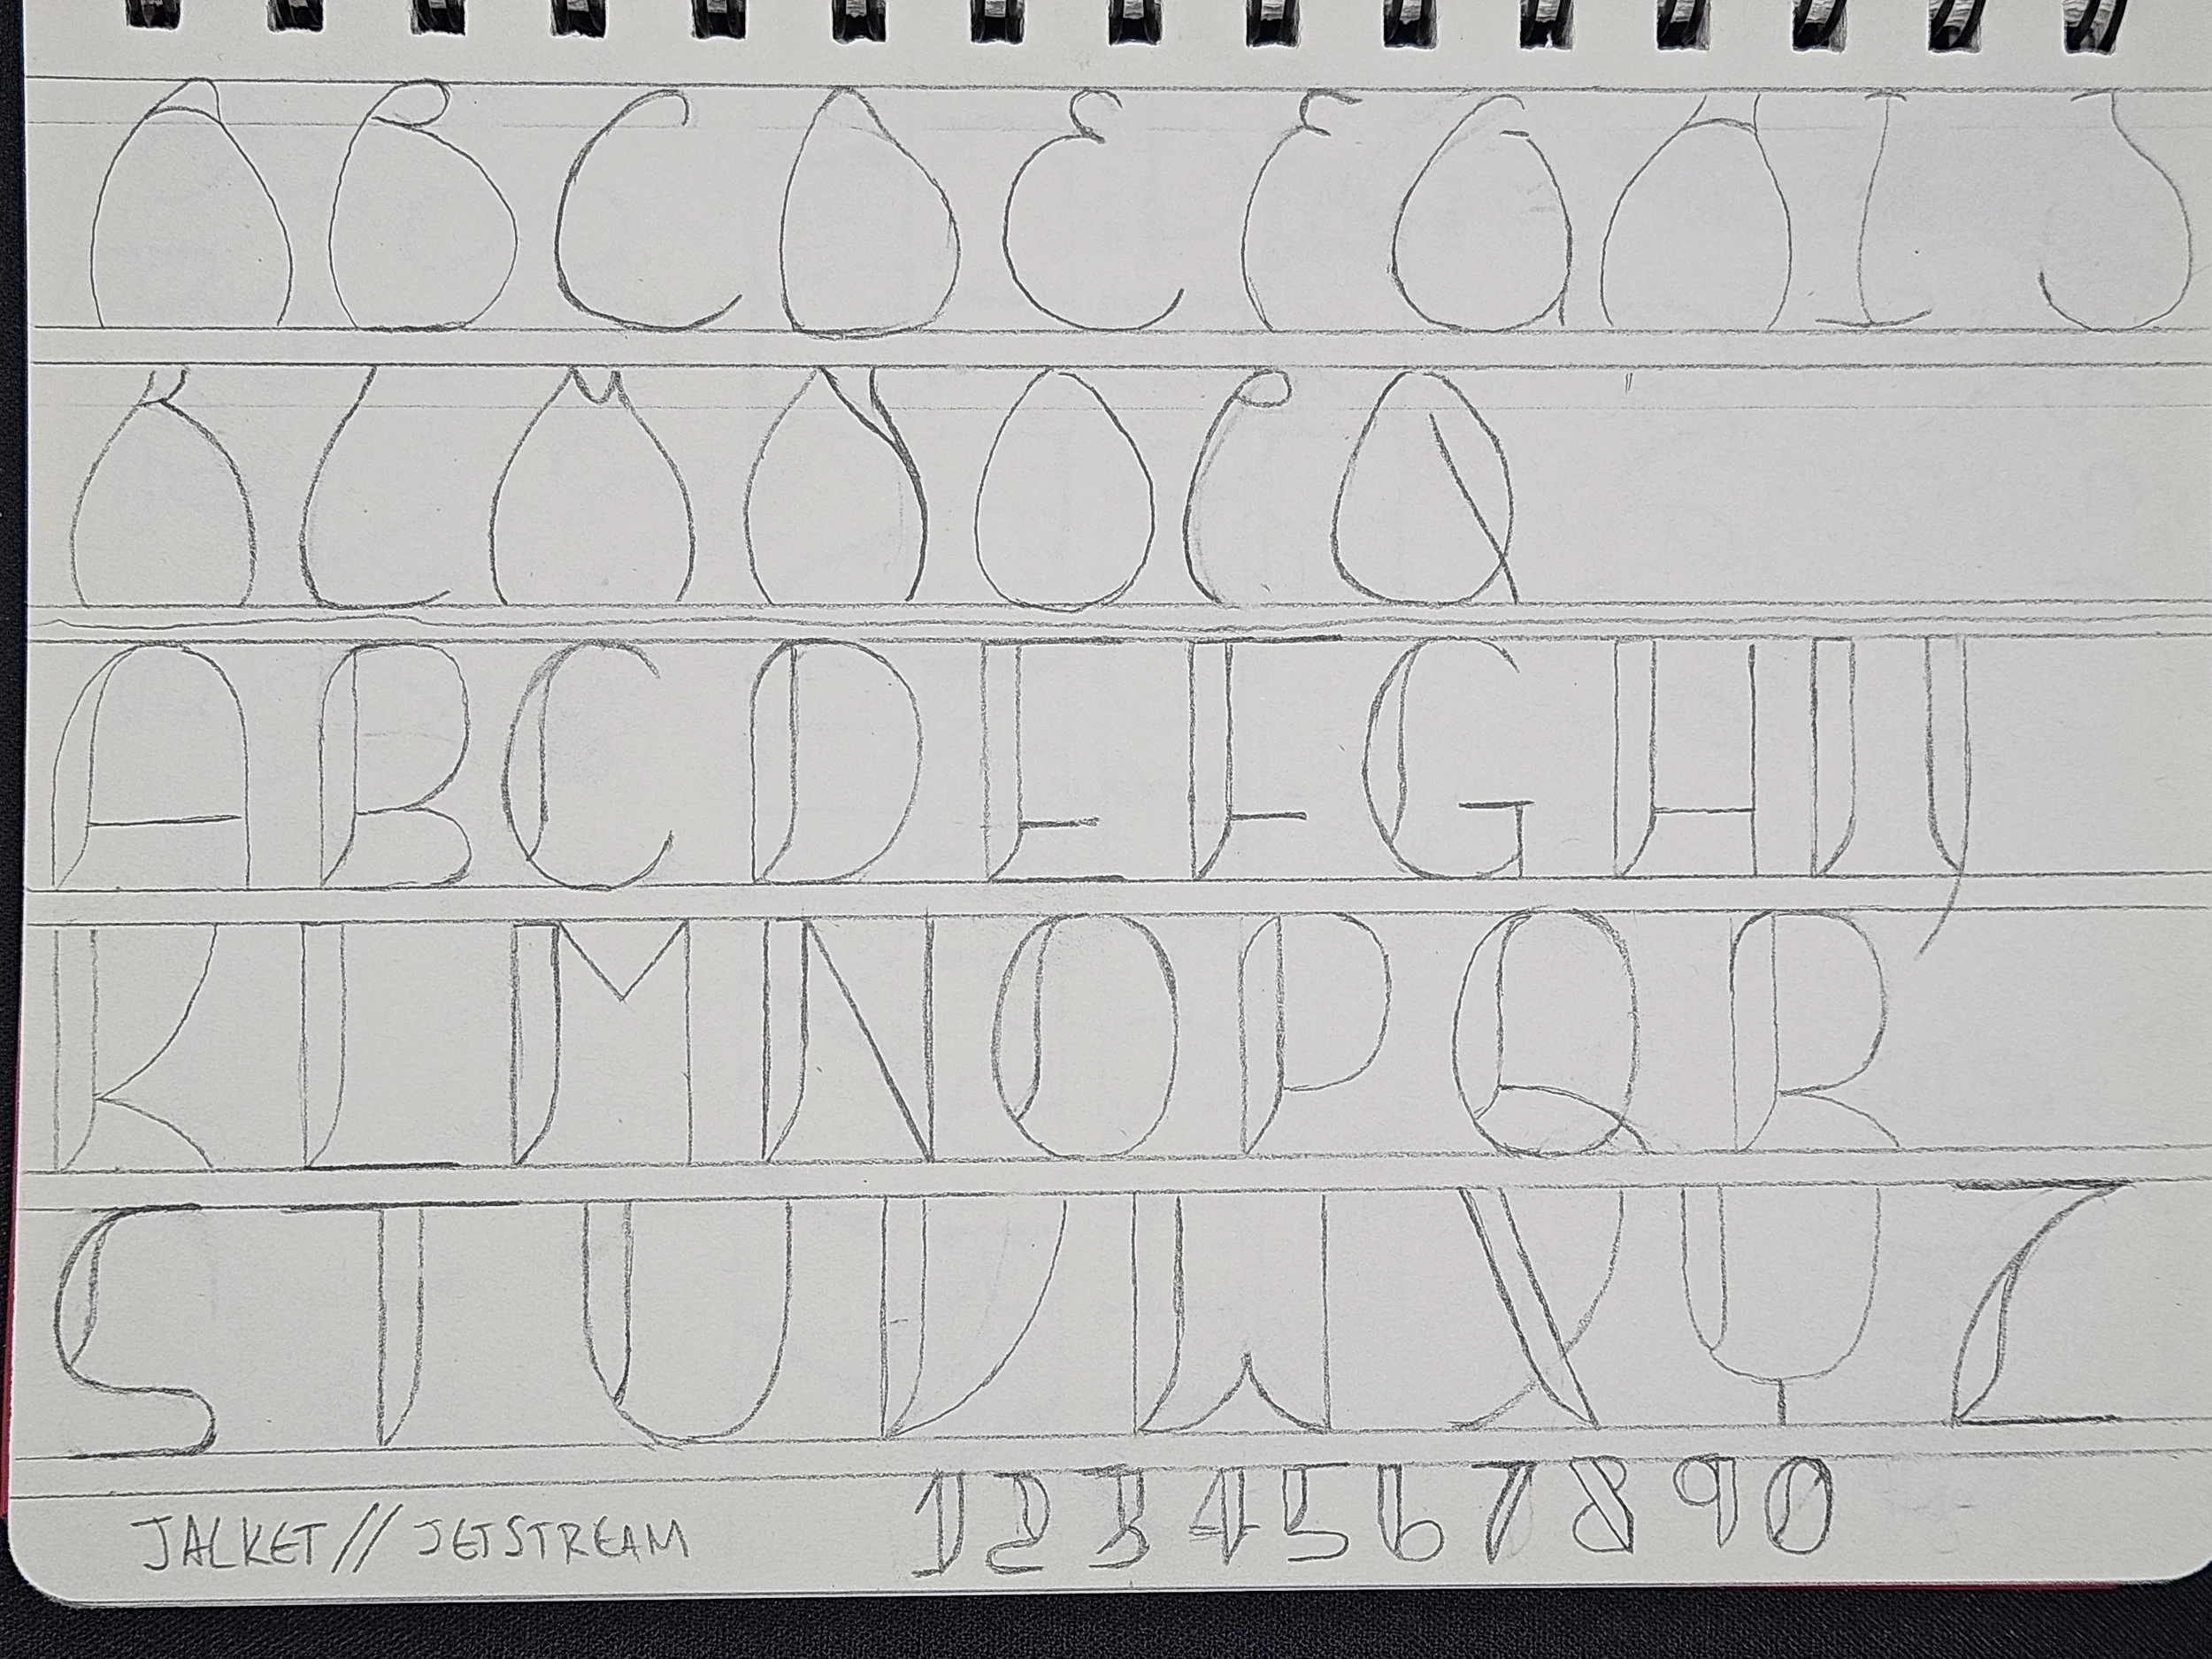 A B C D E F G H I J
K L M N O P Q
A B C D E F G H I J
K L M N O P Q R
S T U V W X Y Z
JALKET // JETSTREAM 1 2 3 4 5 6 7 8 9 0